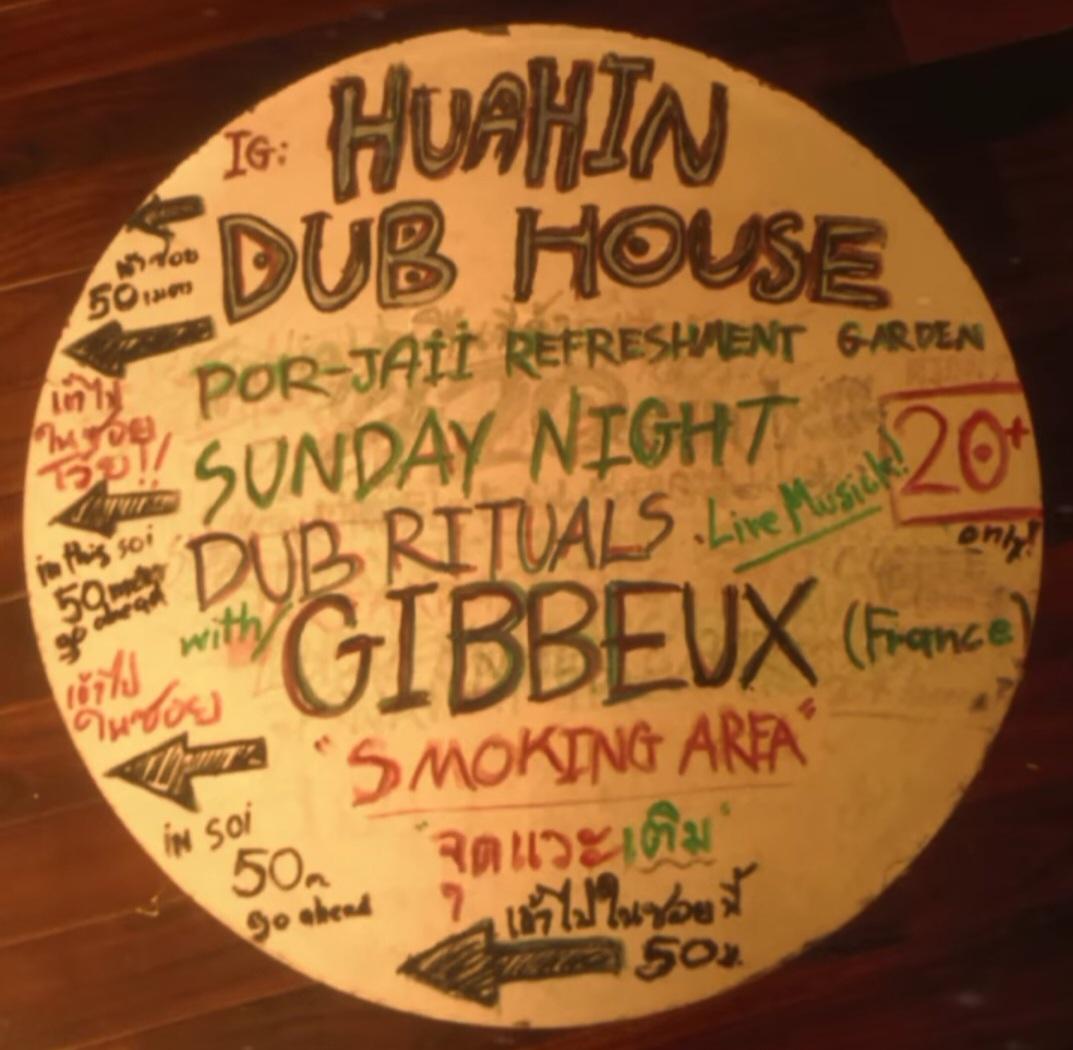 IG: HUAHIN
DUB HOUSE
POR-JAII REFRESHMENT GARDEN
SUNDAY NIGHT
20+
only!
DUB RITUALS
.Live Musick!
with GIBBEUX (France)
"SMOKING AREA"
"จุดแวะเติม"
เข้าไปในซอยนี้
50ม.
เข้าซอย
50 เมตร
เข้าไป
ในซอย
โว้ย!!
in this soi
50 meter
go ahead
เข้าไป
ในซอย
iN SOi
50m
go ahead